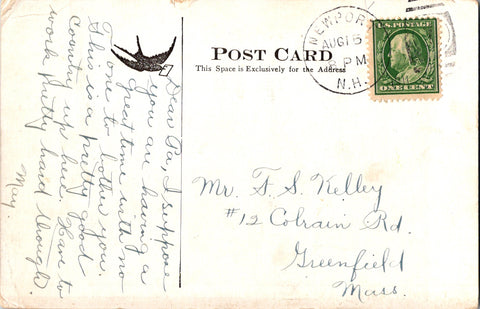 POST CARD
This Space is Exclusively for the Address
NEWPORT
AUG 15
PM
N.H.
U.S. POSTAGE
ONE CENT
Dear Pa, I suppose
you are having a
great time with no
one to bother you.
This is a pretty good
country up here. Have to
work pretty hard though.
May.
Mr. F. S. Kelley
#12 Colrain Rd.
Greenfield
Mass.